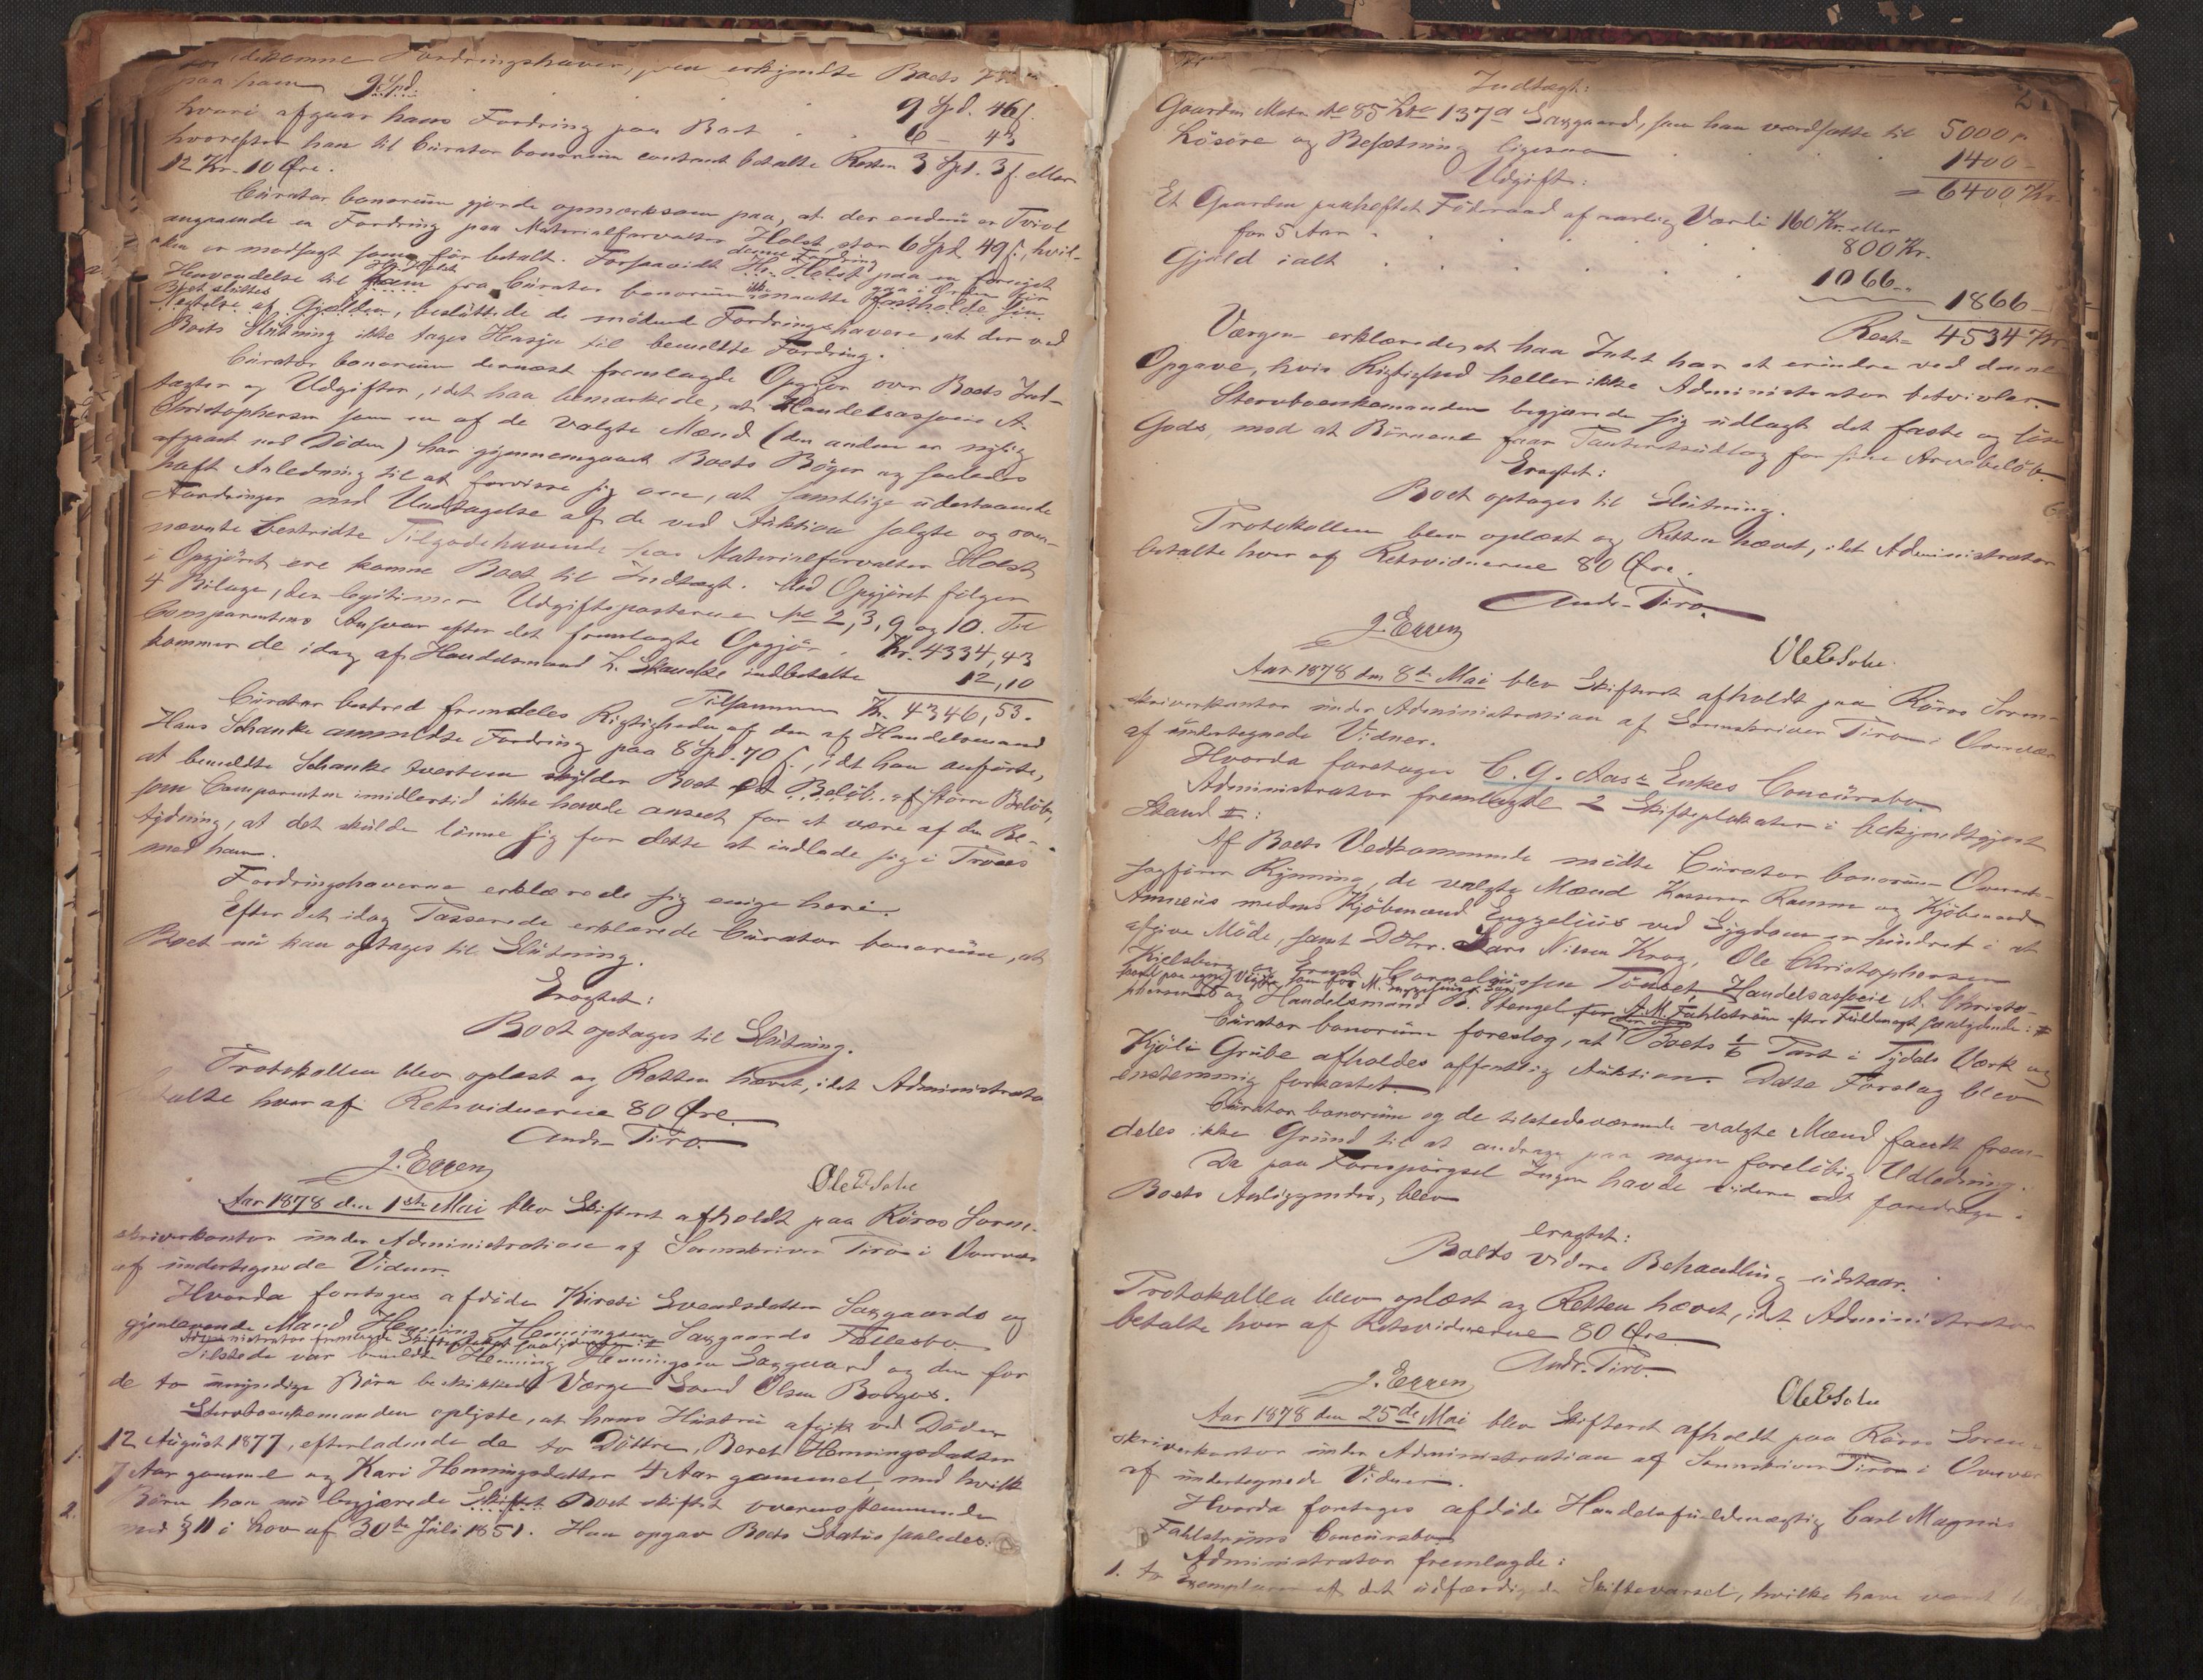 idkomne Fordringshaver, erkjendte Boets
paa ham 9 Spd. . . . 9 Spd. 46 s.
hvori afgaar hans Fordring paa Boet . . 6 - 43
hvorefter han til Curator bonorum contant betalte Resten 3 Spd. 3 s. eller
12 Kr. 10 Øre.
Curator bonorum gjorde opmærksom paa, at der endnu er Tvivl
angaaende en Fordring paa Materialforvalter Holst, stor 6 Spd. 49 s., hvil-
ken er modsagt som før betalt. Forsaavidt denne Fordring Hr. Holst paa en fornyet
Henvendelse til Hr. Holst ham fra Curator bonorum ikke maatte gaa i Orden før fastholde sin
Boet sluttes Negtelse af Gjælden, besluttede de mødende Fordringshavere, at der ved
Boets Slutning ikke tages Hensyn til bemeldte Fordring.
Curator bonorum dernæst fremlagde Opgjør over Boets Ind-
tægter og Udgifter, idet han bemærkede, at Handelsassocie A.
Christophersen som en af de valgte Mænd (den anden er nylig
afgaaet ved Døden) har gjennemgaaet Boets Bøger og saaledes
haft Anledning til at forvisse sig om, at samtlige udestaaende
Fordringer med Undtagelse af de ved Auktion solgte og oven-
nævnte bestridte Tilgodehavende hos Materialforvalter Holst
i Opgjøret ere komne Boet til Indtægt. Med Opgjøret følger
4 Bilage, der legitimere Udgiftsposterne No 2, 3, 9 og 10. Til
Comparentens Ansvar efter det fremlagte Opgjør . Kr. 4334,43
kommer de idag af Handelsmand H. Schancke indbetalte 12,10
Tilsammen Kr. 4346,53.
Curator bestred fremdeles Rigtigheden af den af Handelsmand
Hans Schanke anmeldte Fordring paa 8 Spd. 70 s., idet han anførte,
at bemeldte Schanke tvertom skylder Boet et Beløb af større Beløb,
som Comparenten imidlertid ikke havde anseet for at være af den Be-
tydning, at det skulde lønne sig for dette at indlade sig i Proces
med ham.
Fordringshaverne erklærede sig enige heri.
Efter det idag Passerede erklærede Curator bonorum, at
Boet nu kan optages til Slutning.
Eragtet:
Boet optages til Slutning.
Protokollen blev oplæst og Retten hævet, idet Administrator
betalte hver af Retsvidnerne 80 Øre.
Andr. Tiro.
J. Engzen
Ole E Sohe
Aar 1878 den 1ste Mai blev Skifteret afholdt paa Röros Soren-
skriverkontor under Administration af Sorenskriver Tiro i Overvær
af undertegnede Vidner.
Hvorda foretoges afdøde Kirsti Svendsdatter Saxgaards og
gjenlevende Mand Henning Henningsen Saxgaards Fællesbo.
Administrator fremlagde Skifteplakat saalydende: #
Tilstede var bemeldte Henning Henningsen Saxgaard og den for
de to umyndige Børn beskikkede Værge Svend Olsen Borgos.
Stervboenkemanden oplyste, at hans Hustru afgik ved Døden
1. 12 August 1877, efterladende de to Døttre, Beret Henningsdatter
7 Aar gammel og Kari Henningsdatter 4 Aar gammel, med hvilke
2. Børn han nu begjærede Skiftet Boet skiftet overensstemmende
med § 11 i Lov af 30te Juli 1851. Han opgav Boets Status saaledes:
Indtægt:
Gaarden Matr. No 85 Lno 137a Saxgaard, som han værdsatte til 5000 -
Løsøre og Besætning ligesaa . . . 1400 -
= 6400 Kr.
Udgift:
Et Gaarden paaheftet Føderaad af aarlig Værdi 160 Kr. eller
for 5 Aar . . . . . 800 Kr.
Gjæld ialt . . . . . 1066 -
1866 -
Rest = 4534 Kr.
Værgen erklærede, at han Intet har at erindre ved denne
Opgave, hvis Rigtighed heller ikke Administrator betvivler.
Stervboenkemanden begjærede sig udlagt det faste og løse
Gods, mod at Børnene faar Panteretsudlæg for sine Arvebeløb.
Eragtet:
Boet optages til Slutning.
Protokollen blev oplæst og Retten hævet, idet Administrator
betalte hver af Retsvidnerne 80 Øre.
Andr. Tiro.
J. Engzen
Ole E Sohe
Aar 1878 den 8de Mai blev Skifteret afholdt paa Röros Soren-
skriverkontor under Administration af Sorenskriver Tiro i Overvær
af undertegnede Vidner.
Hvorda foretoges C. G. Aas's Enkes Concursbo.
Administrator fremlagde 2 Skifteplakater i bekjendtgjort
Stand #:
Af Boets Vedkommende mødte Curator bonorum Overrets-
sagfører Rynning, de valgte Mænd Kasserer Ramm og Kjøbmand
Amneus medens Kjøbmand Engzelius ved Sygdom er hindret i at
afgive Møde, samt DHrr. Lars Nilsen Krog, Ole Christophersen
Kjelsberg og Ernst Corneliussen Tönset, Handelsassocie A. Christo-
phersen saavel paa egne Vegne som for M. Engzelius & Søn og Handelsmand P. Stengel for A. M. Fahlström efter Fuldmagt saalydende: #
Curator bonorum foreslog, at der over Boets 1/6 Part i Tydals Værk og
Kjöli Grube afholdes offentlig Auktion. Dette Forslag blev
enstemmig forkastet.
Curator bonorum og de tilstedeværende valgte Mænd fandt frem-
deles ikke Grund til at andrage paa nogen foreløbig Udlodning.
Da paa Forespørgsel Ingen havde videre at foredrage i
Boets Anliggender, blev
eragtet:
Boets videre Behandling udstaar.
Protokollen blev oplæst og Retten hævet, idet Administrator
betalte hver af Retsvidnerne 80 Øre
Andr. Tiro.
J. Engzen
Ole E Sohe
Aar 1878 den 25de Mai blev Skifteret afholdt paa Röros Soren-
skriverkontor under Administration af Sorenskriver Tiro i Overvær
af undertegnede Vidner.
Hvorda foretoges afdøde Handelsfuldmægtig Carl Magnus
Fahlströms Concursbo.
Administrator fremlagde:
1. to Exemplarer af det udfærdigede Skiftevarsel, hvilke have været